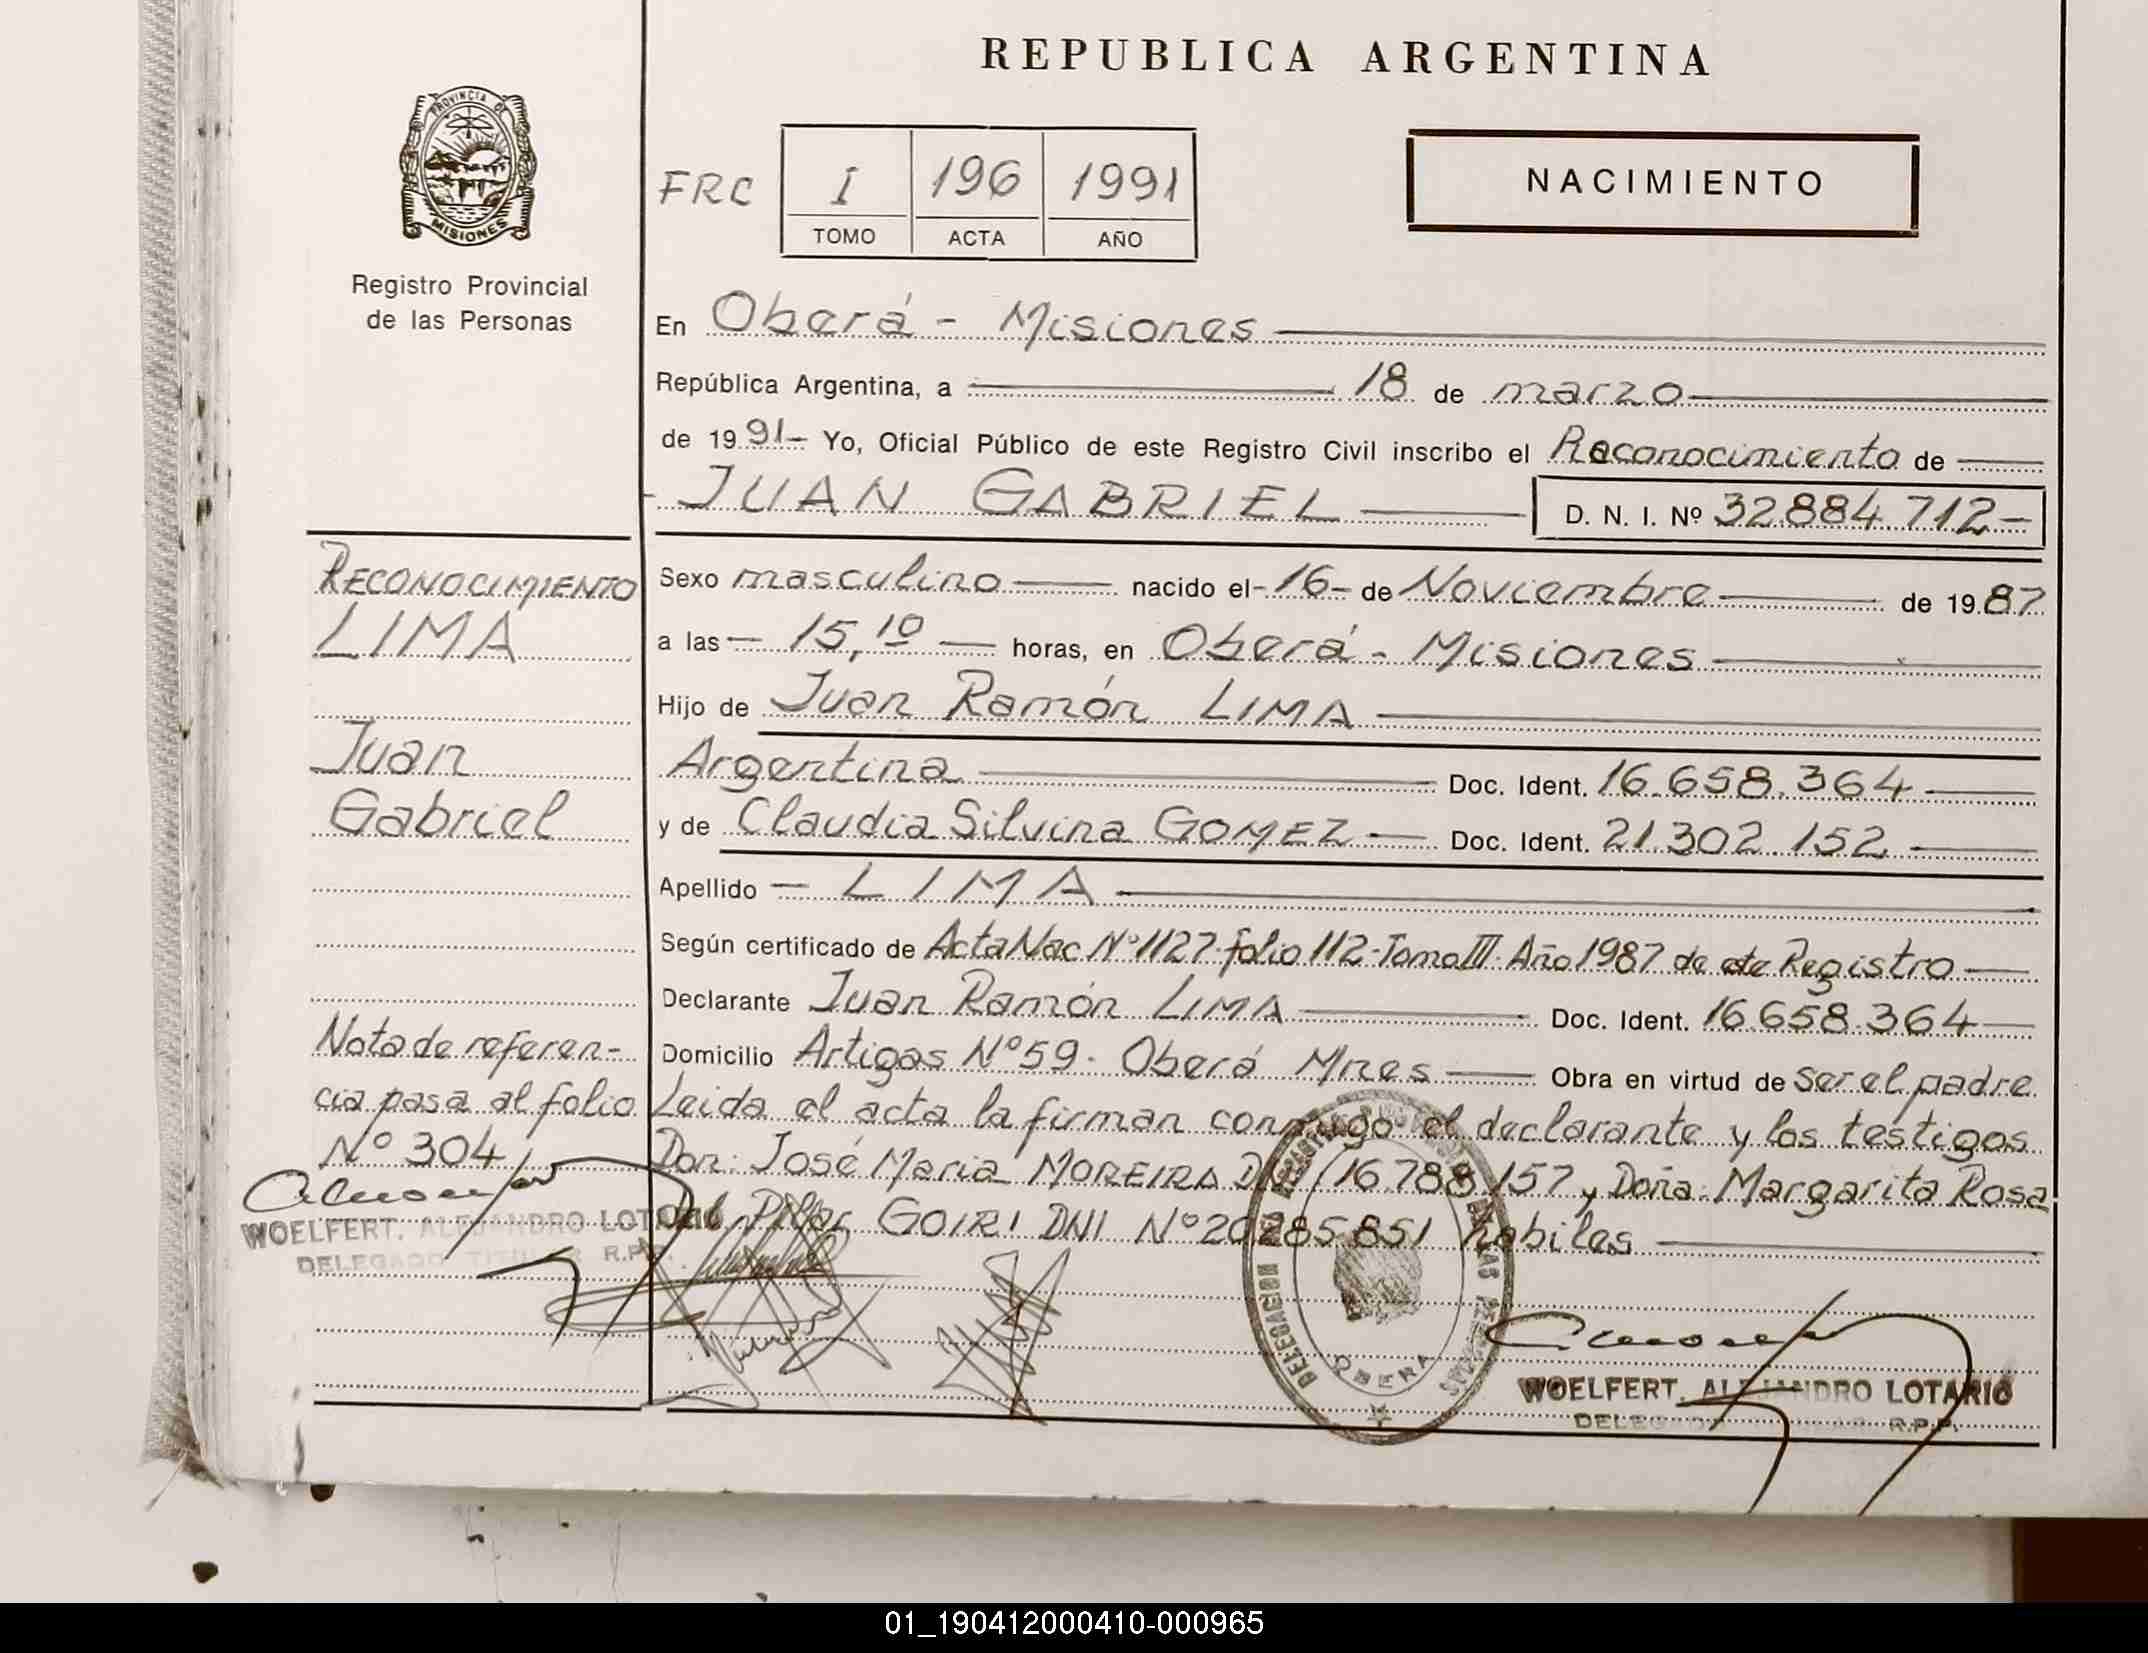 REPUBLICA ARGENTINA
PROVINCIA DE
MISIONES
Registro Provincial
de las Personas
FRC
I 196 1991
TOMO ACTA AÑO
NACIMIENTO
En Oberá - Misiones
República Argentina, a 18 de marzo
de 1991- Yo, Oficial Público de este Registro Civil inscribo el Reconocimiento de
- JUAN GABRIEL D. N. I. Nº 32.884.712-
RECONOCIMIENTO
LIMA
Juan
Gabriel
Nota de referen-
cia pasa al folio
Nº 304
WOELFERT, ALEJANDRO LOTARIO
DELEGADO TITULAR R.P.P.
Sexo masculino nacido el -16- de Noviembre de 1987
a las - 15,10 - horas, en Oberá - Misiones
Hijo de Juan Ramón LIMA
Argentina Doc. Ident. 16.658.364
y de Claudia Silvina GOMEZ Doc. Ident. 21.302.152
Apellido - LIMA
Según certificado de Acta Nac Nº 1127-folio 112-Tomo III-Año 1987 de este Registro
Declarante Juan Ramón LIMA Doc. Ident. 16.658.364
Domicilio Artigas Nº 59 - Oberá Mnes Obra en virtud de ser el padre.
Leida el acta la firman conmigo el declarante y los testigos
Don: José Maria MOREIRA DNI 16.788.157 y Doña: Margarita Rosa
del Pilar GOIRI DNI Nº 20.285.851 habiles
DELEGACION DEL REGISTRO PROVINCIAL DE LAS PERSONAS
OBERA
WOELFERT, ALEJANDRO LOTARIO
DELEGADO TITULAR R.P.P.
01_190412000410-000965